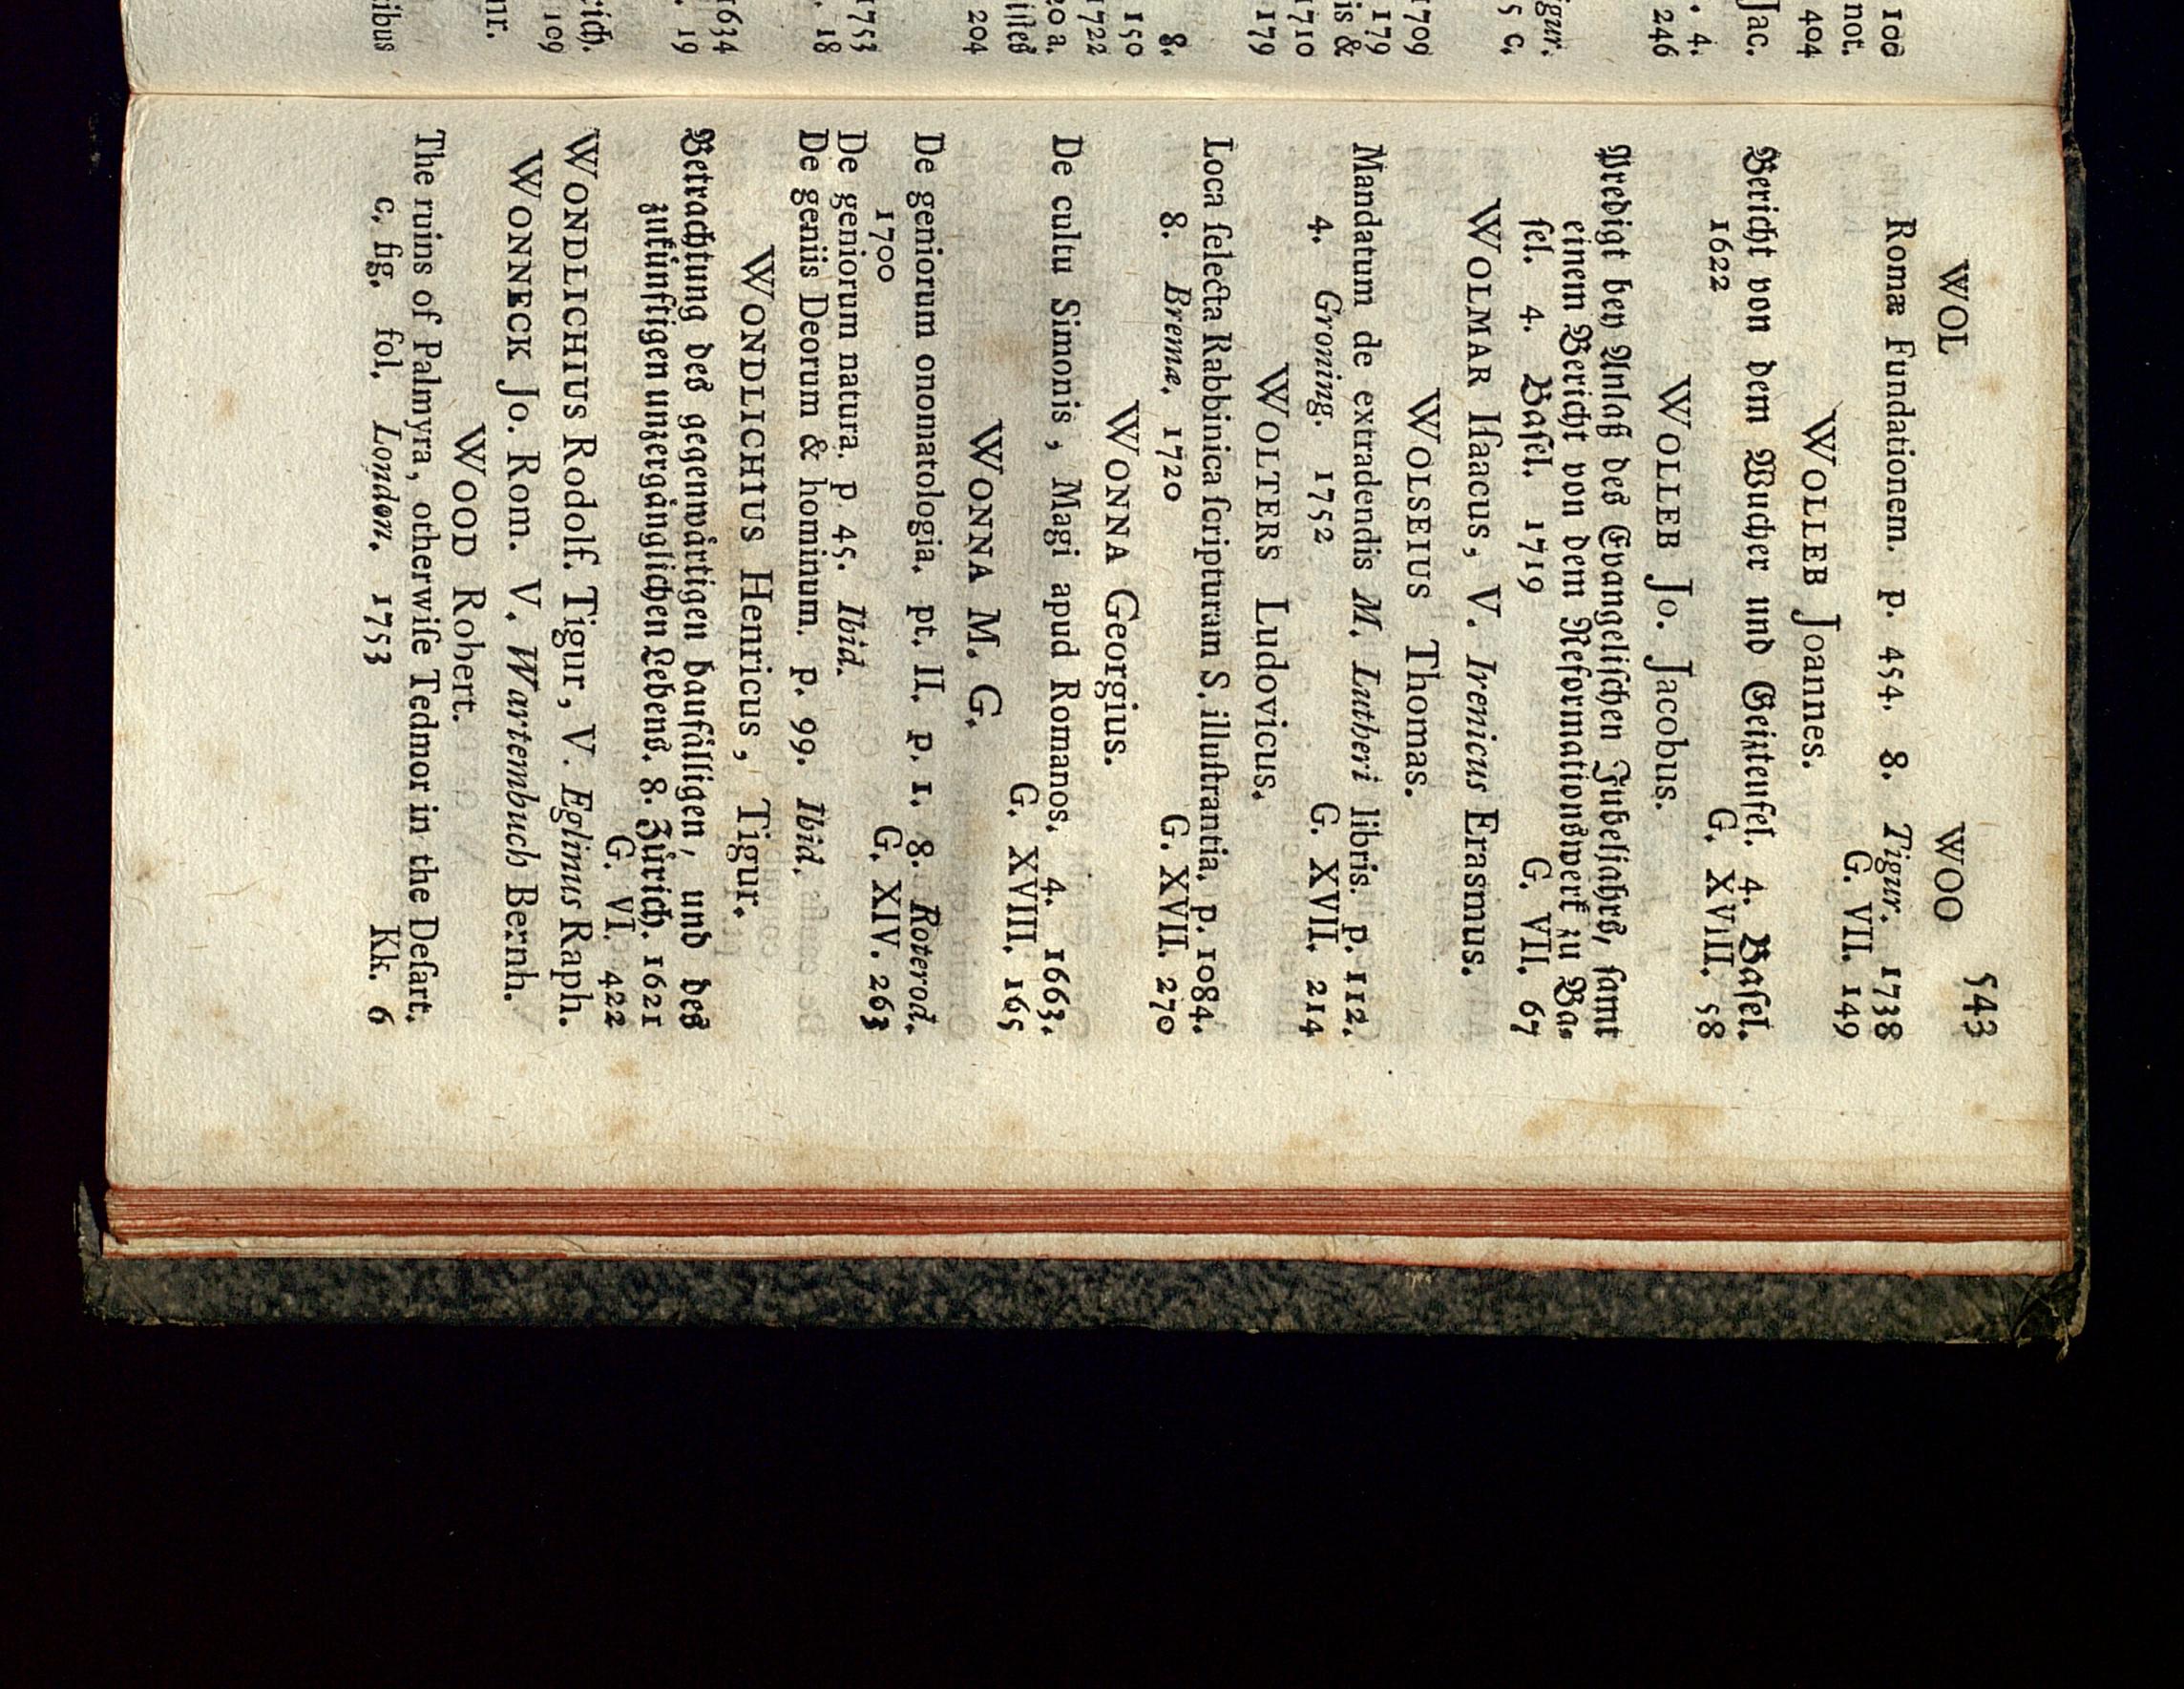 WOL WOO 543
Romæ Fundationem. p. 454. 8. Tigur. 1738
G. VII. 149
WOLLEB Joannes.
Bericht von dem Wucher und Geitzteufel. 4. Basel.
1622 G. XVIII. 58
WOLLEB Jo. Jacobus.
Predigt bey Anlaß des Evangelischen Jubeljahrs, samt
einem Bericht von dem Reformationswerk zu Ba-
sel. 4. Basel. 1719 G. VII. 67
WOLMAR Iſaacus, V. Irenicus Erasmus.
WOLSEIUS Thomas.
Mandatum de extradendis M. Lutheri libris. p. 112.
4. Groning. 1752 G. XVII. 214
WOLTERS Ludovicus.
Loca ſelecta Rabbinica ſcripturam S. illuſtrantia. p. 1084.
8. Bremæ. 1720 G. XVII. 270
WONNA Georgius.
De cultu Simonis, Magi apud Romanos. 4. 1663.
G. XVIII. 165
WONNA M. G.
De geniorum onomatologia. pt. II. p. 1. 8. Roterod.
1700 G. XIV. 263
De geniorum natura. p. 45. Ibid.
De geniis Deorum & hominum. p. 99. Ibid.
WONDLICHIUS Henricus, Tigur.
Betrachtung des gegenwårtigen baufålligen, und des
zukünftigen unzergånglichen Lebens. 8. Zürich. 1621
G. VI. 422
WONDLICHIUS Rodolf. Tigur, V. Eglinus Raph.
WONNECK Jo. Rom. V. Wartembuch Bernh.
WOOD Robert.
The ruins of Palmyra, otherwiſe Tedmor in the Deſart.
c. fig. fol. London. 1753 Kk. 6
100
not.
404
Jac.
. 4.
246
igur.
5 c.
1709
179
is &
1710
179
8.
150
1722
20 a.
iſtes
204
1753
. 18
1634
. 19
rich.
109
ur.
ribus